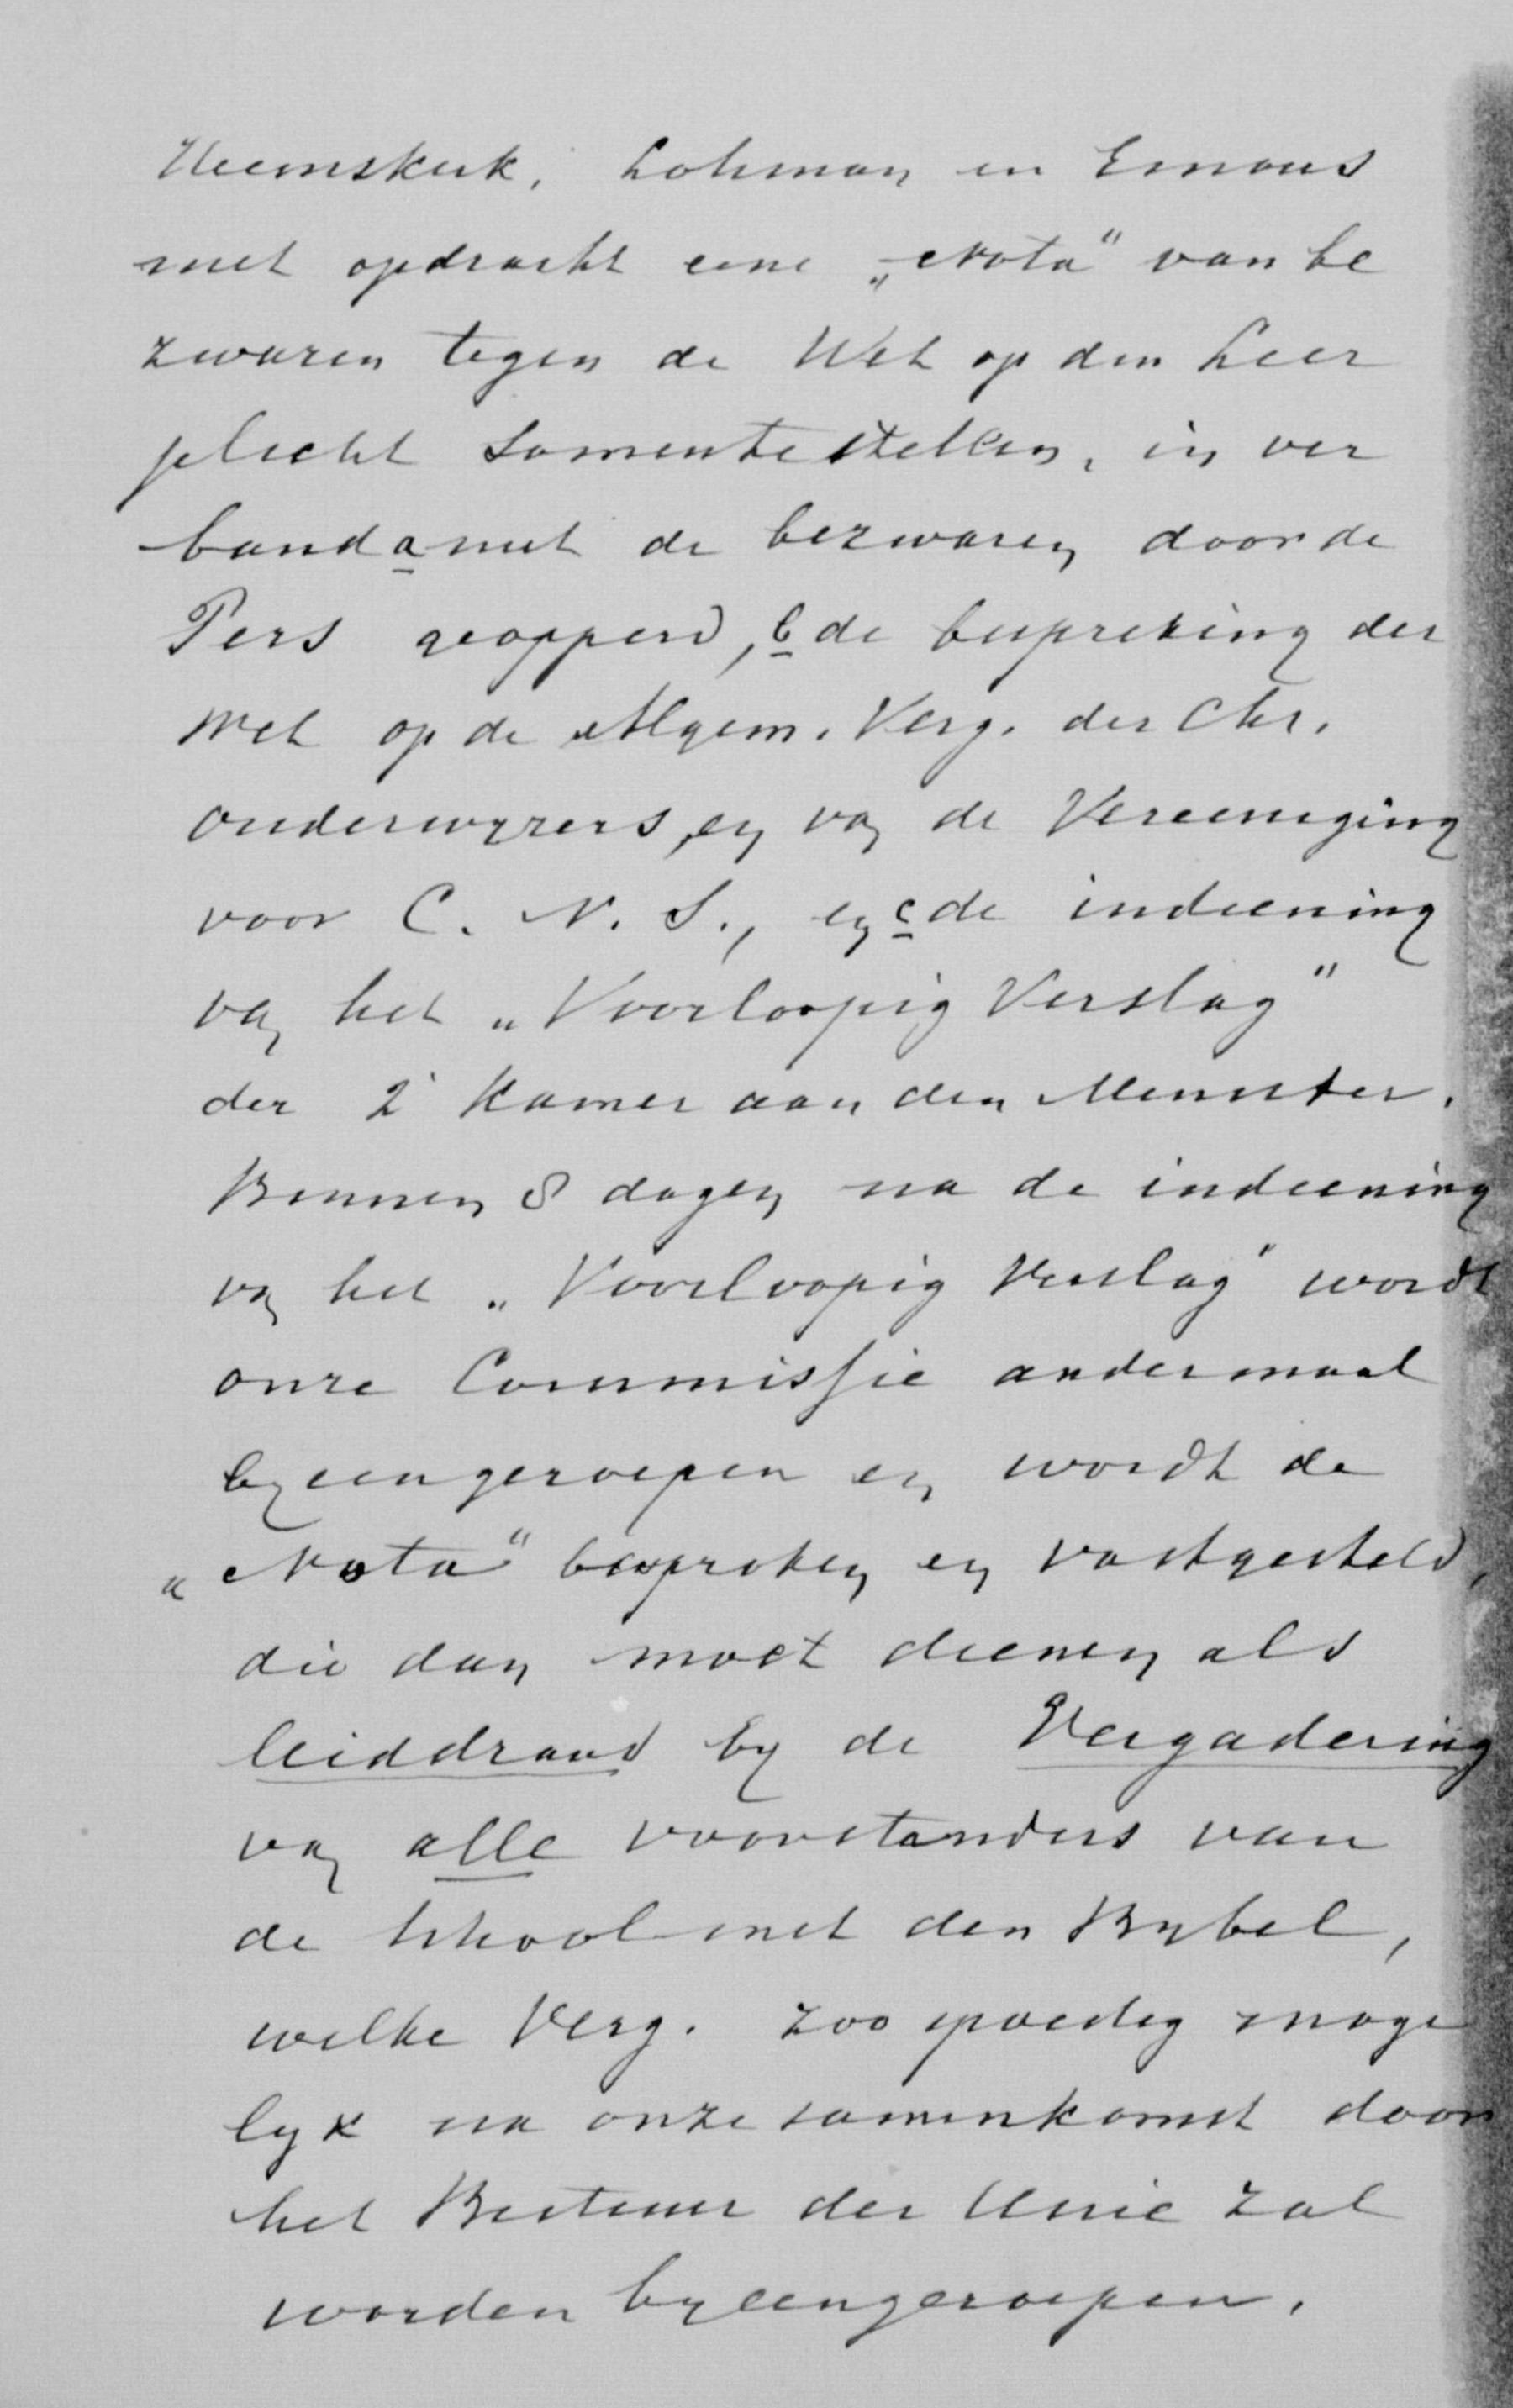 Heemskerk, Lohman en Emous
met opdracht eene „Nota" van be
zwaren tegen de Wet op den Leer
plicht samentestellen, in ver
band a met de bezwaren door de
Pers geopperd, b de bespreking der
Wet op de Algem. Verg. der Chr.
onderwyzers, en van de Vereeniging
voor C. N. S., en c de indiening
van het „Voorloopig Verslag"
der 2e Kamer aan den Minister.
Binnen 8 dagen na de indiening
van het „Voorloopig Verslag" wordt
onze Commissie andermaal
byeengeroepen en wordt de
„Nota" besproken en vastgesteld,
die dan moet dienen als
leiddraad by de Vergadering
van alle voorstanders van
de School met den Bybel,
welke Verg. zoo spoedig moge
lyk na onze samenkomst door
het Bestuur der Unie zal
worden byeengeroepen.